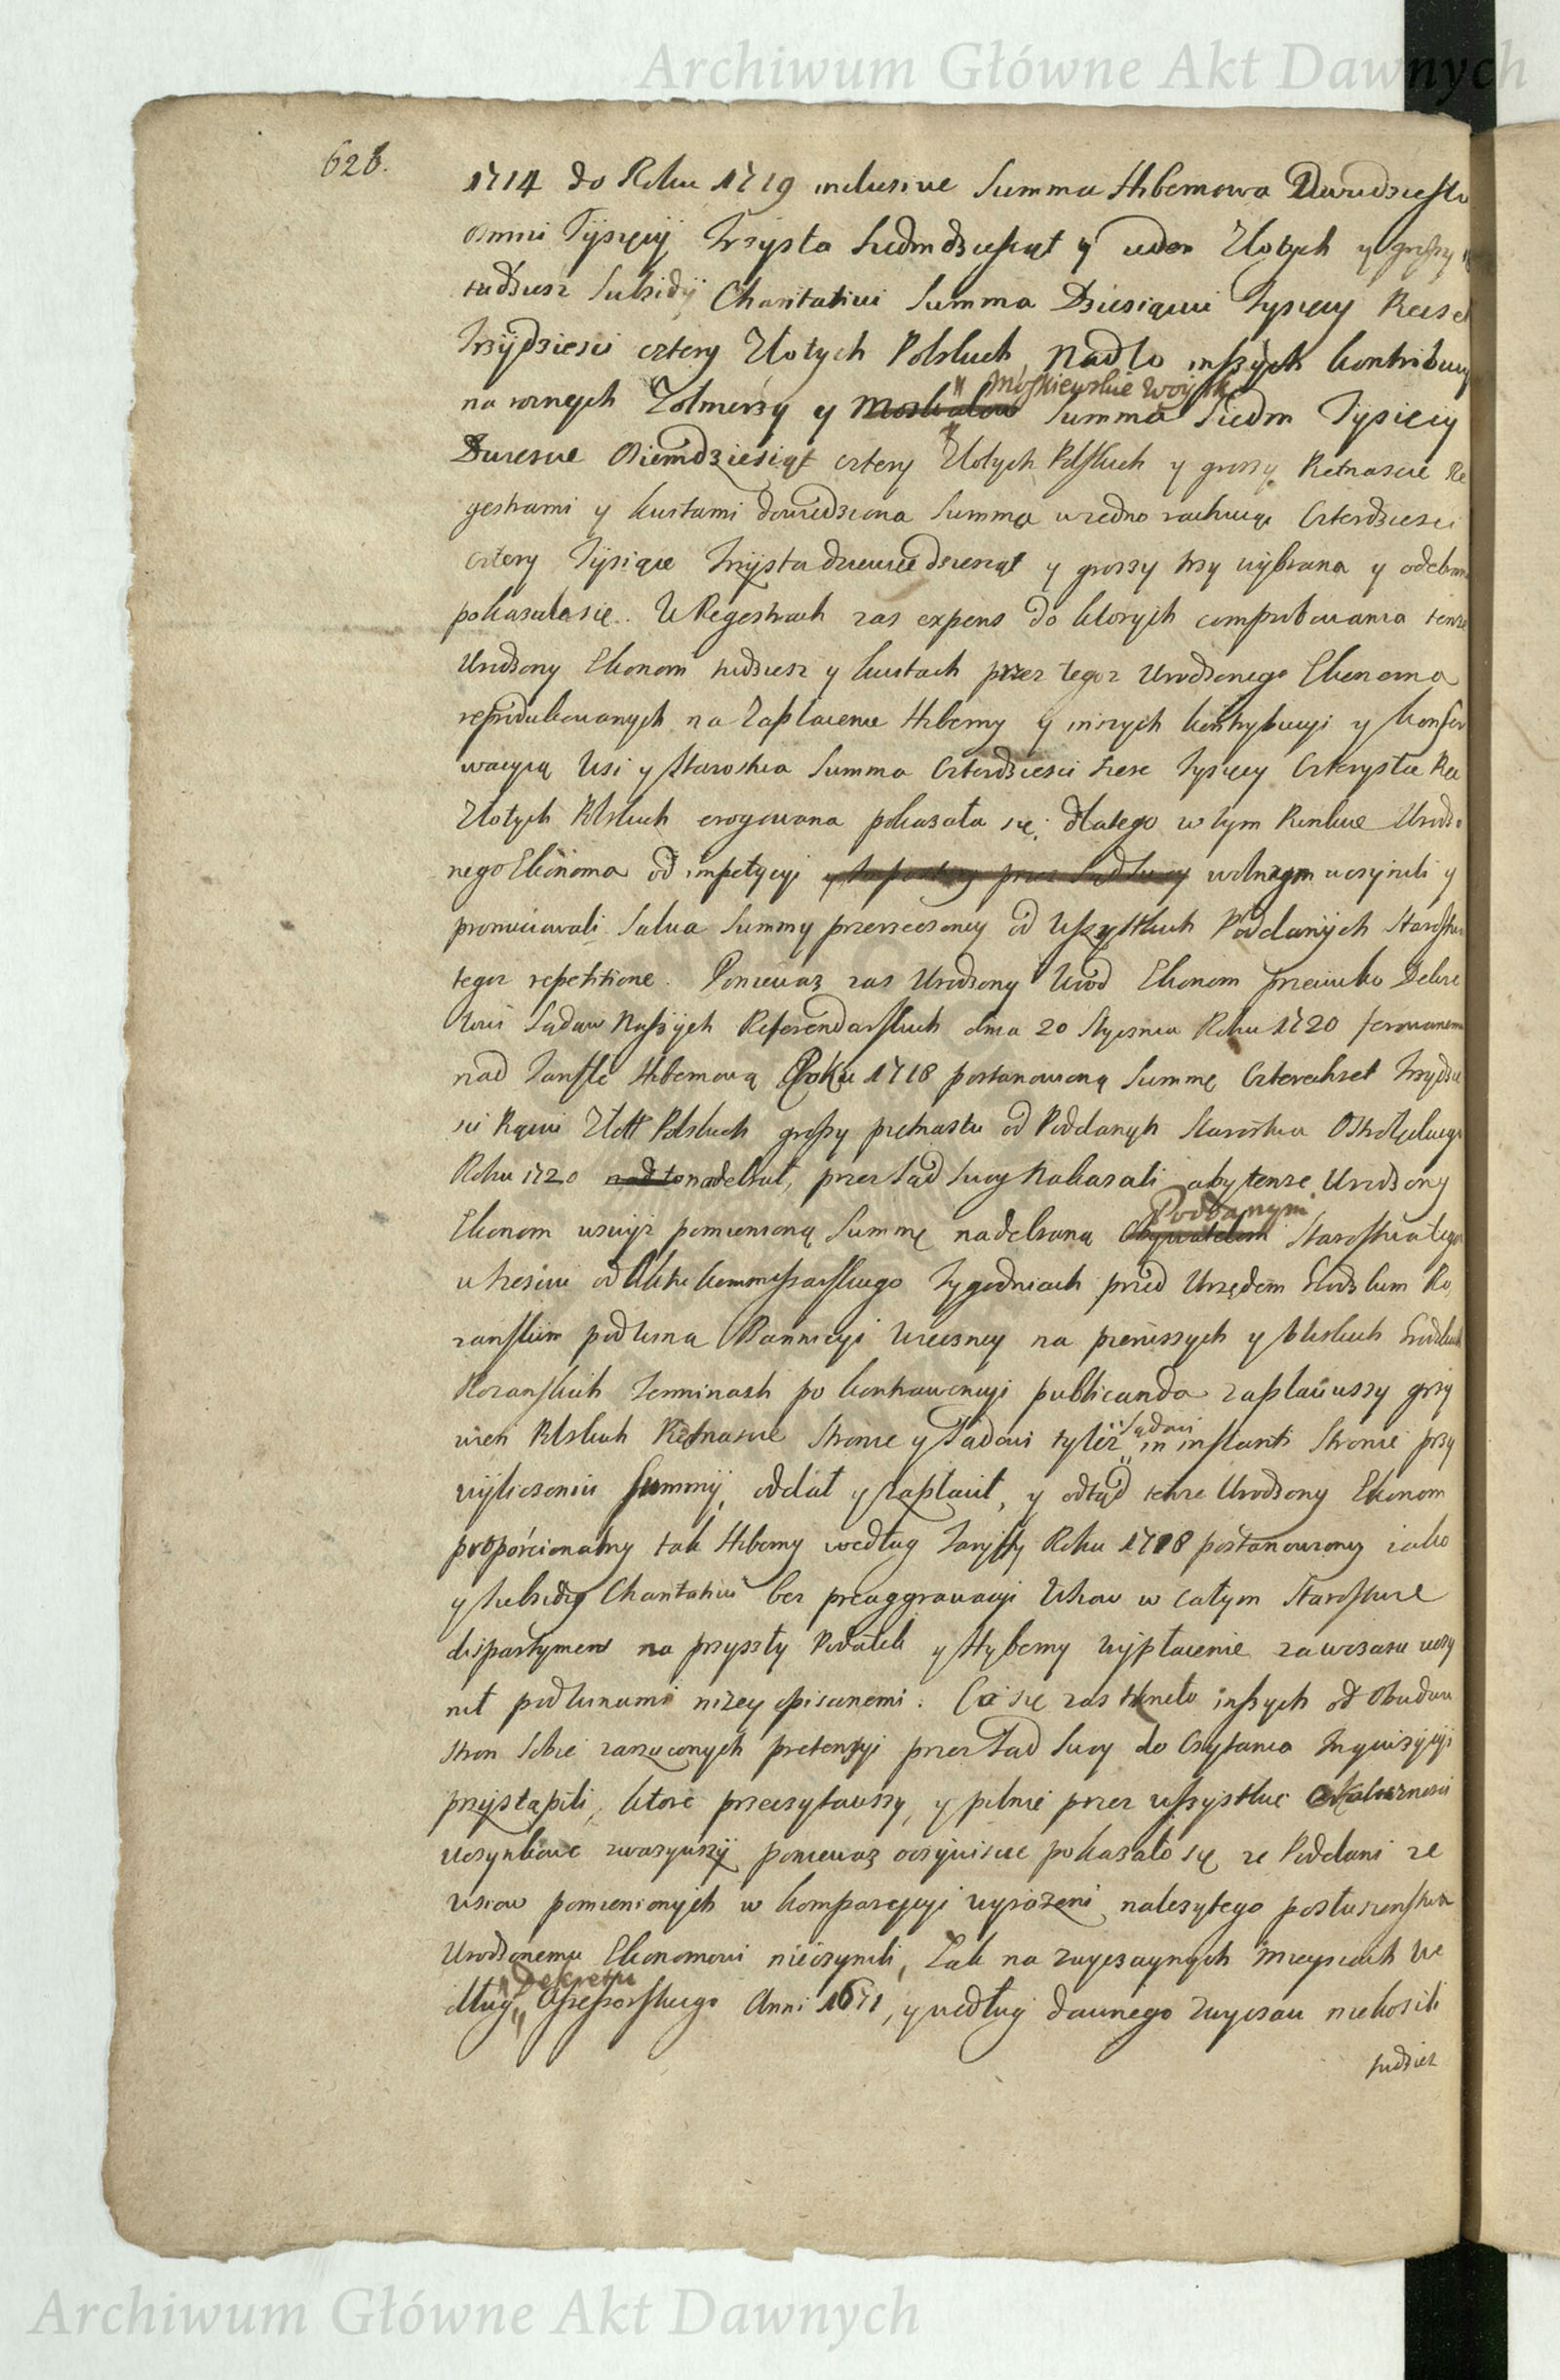 Archiwum Główne Akt Dawnych
626.
1714 do Roku 1719 inclusive Summa Hibernowa Dwudziestu
osmiu Tysięcÿ Trzysta Siedmdziesiąt y ieden Złotych y groszy
tudziesz Subsidÿ Charitativi Summa Dziesiąciu Tysięcy Pięset
Trzÿdziesci cztery Złotych Polskich, Nadto inszÿch kontribucyi
na roznych Zołnierzy y Moskalow Moskiewskie Woysko Summa Siedm Tysięcy
Dwiescie Osiemdziesiąt cztery Złotych Polskich y groszy Piętnascie Re
gestrami y kwitami dowiedziona Summą w iedno rachuiąc Czterdziesci
cztery Tysiące Trzysta dziewiędziesiąt y groszy trzy wybrana y odebrana
pokazała się. W Regestrach zas expens do ktorych comprobowania tenze
Urodzony Ekonom tudziesz y kwitach przez tegoz Urodzonego Ekonoma
reprodukowanych na Zapłacenie Hiberny y inszych kontrybucyi y konser
wacyią Wsi y Starostwa Summa Czterdziesci szesc Tysięcy Czterysta Pięc
Złotych Polskich erogowana pokazała się; dlatego w tym Punkcie Urodzo
nego Ekonoma od impetycyi wolnym uczynili y
pronuciowali Salva Summy przerzeczoney od Wszystkich Poddanÿch Starostwa
tegoz repetitione. Poniewaz zas Urodzony Wod Ekonom przeciwko Dekre
towi Sądow Naszych Referendarskich dnia 20 Stycznia Roku 1720 ferowanemu
nad Tariffę Hibernową Roku 1718 postanowioną Summę Czterechset Trzydzie
sci Pąciu Złott Polskich groszy piętnastu od Poddanych Starostwa Ostrołęckiego
Roku 1720 nadto nadebrał, przez Sąd Swoy Nakazali aby tenze Urodzony
Ekonom wzwyz pomienioną Summę nadebraną Obywatelom Poddanym Starostwa tego
w szesciu od Aktu kommissarskiego Tygodniach przed Urzędem Grodzkim Ro
zanskim pod winą Bannicyi Wieczney na pierwszych y bliskich Grodzkich
Rozanskich Terminach po kontrawencyi publicanda zapłaciwszy grzy
wien Polskich Piętnascie Stronie y Sądowi tylez Sądowi in instanti Stronie przy
wÿliczeniu Summÿ, oddał y zapłacił, y odtąd tenze Urodzony Ekonom
proporcionalny tak Hiberny według Taryffy Roku 1718 postanowioney iako
y Subsidÿ Charitativi bez preaggrawacyi Wsiow w całym Starostwie
dispartyment na przyszły Podatek y Hyberny wypłacenie zawczasu uczy
nił pod winami nizey opisanemi. Co się zas tkneło inszych od Obudwu
Stron Sobie zarzuconych pretensyi przez Sad Swoy do Czytania Inquizycyi
przÿstąpili, ktore przeczytawszy, y pilnie przez wszystkie Okoliczności
Uczynkowe zwazywszÿ poniewaz oczywiscie pokazało się ze Poddani ze
wsiow pomienionych w komparycyi wyrazeni nalezytego posłuszenstwa
Urodzonemu Ekonomowi nieczynili, Łąk na zwyczaynych mieyscach We
dług Dekretu Assessorskiego Anni 1671, y według dawnego zwyczau niekosili
tudziez
Archiwum Główne Akt Dawnych